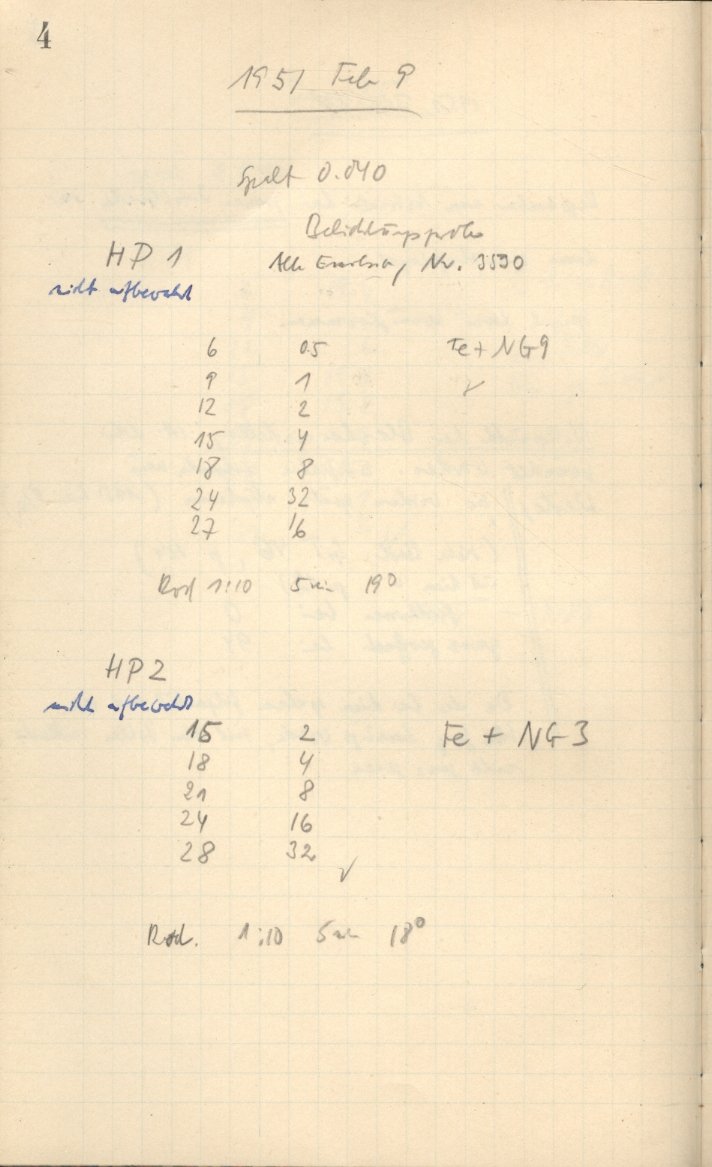 4
1951 Feb 9
Spalt 0.040
Belichtungsprobe
HP 1
Alte Emulsion, Nr. 3590
nicht aufbewahrt
6 0.5 Fe + NG9
9 1 ✓
12 2
15 4
18 8
24 32
27 16
Rod 1:10 5 min 19°
HP2
nicht aufbewahrt
15 2 Fe + NG3
18 4
21 8
24 16
28 32 ✓
Rod. 1:10 5 min 18°